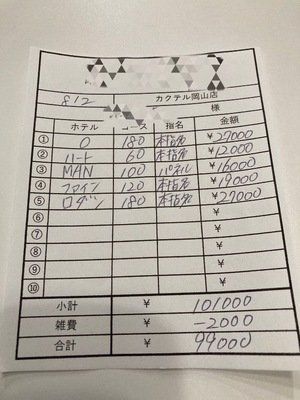 812 カクテル岡山店
様
ホテル コース 指名 金額
① O 180 本指名 ¥27000
② ハート 60 本指名 ¥12000
③ MAN 100 パネル ¥16000
④ ファイン 120 本指名 ¥19000
⑤ ログハウ 180 本指名 ¥27000
⑥ ¥
⑦ ¥
⑧ ¥
⑨ ¥
⑩ ¥
小計 ¥ 101000
雑費 ¥ -2000
合計 ¥ 99000